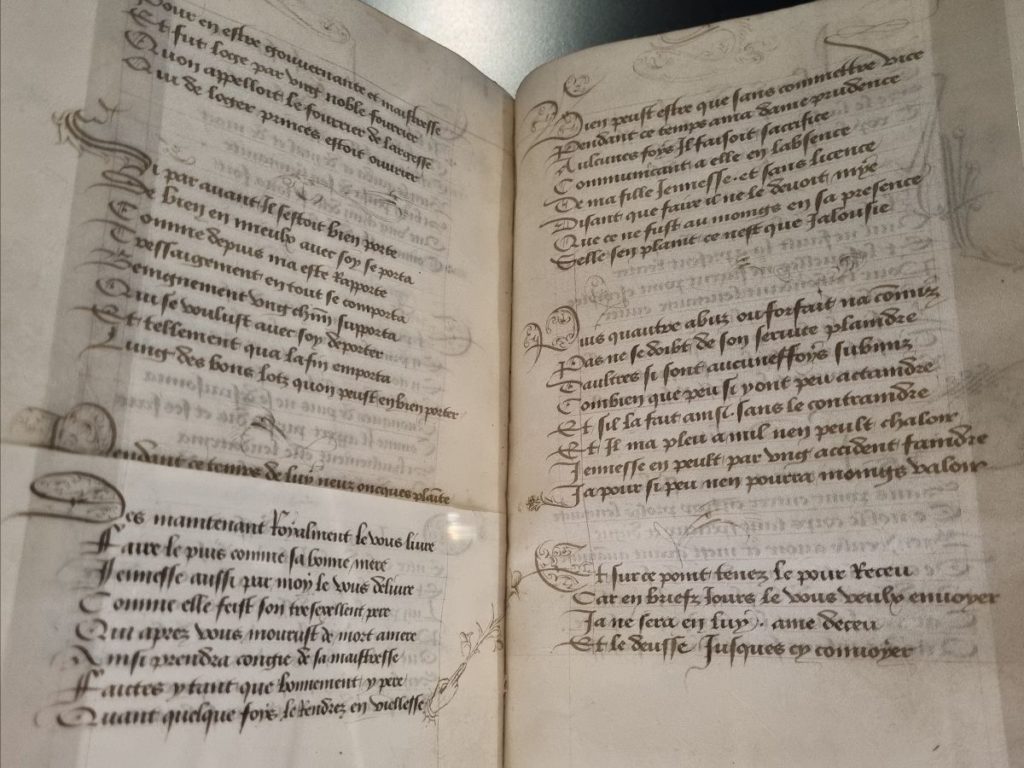 Pour en estre gouvernante et maistresse
Et fut loge par ung noble fourrier
Quon appelloit le fourrier de largesse
Qui de loger princes estoit ouvrier
Si par avant Il sestoit bien porte
De bien en mieulx avec soy se porta
Comme depuis ma este Rapporte
Tressaigement en tout se comporta
Benignement ung chm̄ supporta
Qui se voulust avec soy deporter
Et tellement qua lafin emporta
Lung des bons lotz quon peust en bien porter
Pendant ce temps de luy neuz oncques plainte
Des maintenant Royalment le vous livre
Faire le puis comme sa bonne mere
Jennesse aussi par moy le vous delivre
Comme elle feist son tresexellent pere
Qui aprez vous mourust de mort amere
Ainsi prendra congie de sa maistresse
Faictes y tant que bonnement y pere
Quant quelque foys le Rendrez en viellesse
Bien peust estre que sans commettre vice
Pendant ce temps ama dame prudence
Aulcunes foys Il faisoit sacrifice
Communicant a elle en labsence
De ma fille Jennesse . et sans licence
Disant que faire il ne le devoit mye
Que ce ne fust au moings en sa presence
Selle sen plaint ce nest que Jalousie
Puis quautre abuz ou forfait na cōmiz
Pas ne se doibt de son service plaindre
Daultres si sont aucuneffoys submiz
Combien que peu si y ont peu actaindre
Et sil la fait ainsi . sans le contraindre
Et Il ma pleu a mil nen peult chaloir
Jennesse en peult par ung accident faindre
Ja pour si peu nen pourra moings valoir
Et sur ce point tenez le pour Receu
Car en briefz Jours le vous veulx envoyer
Ja ne sera en luy . ame deceu
Et le deusse Jusques cy convoyer